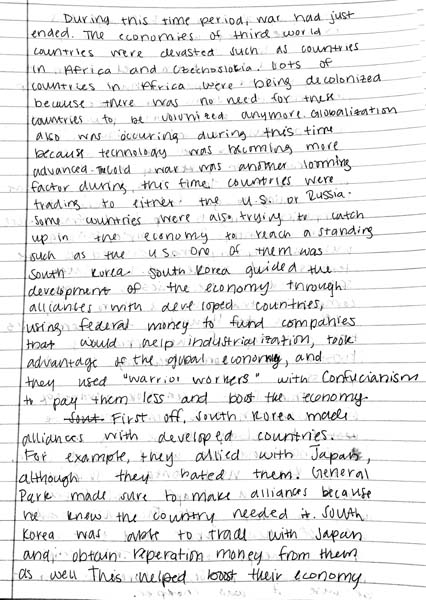 During this time period, war had just
ended. The economies of third world
countries were devasted such as countries
in Africa and Czechoslokia. Lots of
countries in Africa were being decolonized
because there was no need for these
countries to be colonized anymore. Globalization
also was occuring during this time
because technology was becoming more
advanced. The Cold war was another looming
factor during this time, countries were
trading to either the U.S. or Russia.
Some countries were also trying to catch
up in the economy to reach a standing
such as the U.S. One of them was
South Korea. South Korea guided the
development of the economy through
alliances with developed countries,
using federal money to fund companies
that would help industrialization, took
advantage of the global economy, and
they used "warrior workers" with Confucianism
to pay them less and boost the economy.
First off, South Korea made
alliances with developed countries.
For example, they allied with Japan,
although they hated them. General
Park made sure to make alliances because
he knew the country needed it. South
Korea was able to trade with Japan
and obtain reperation money from them
as well. This helped boost their economy